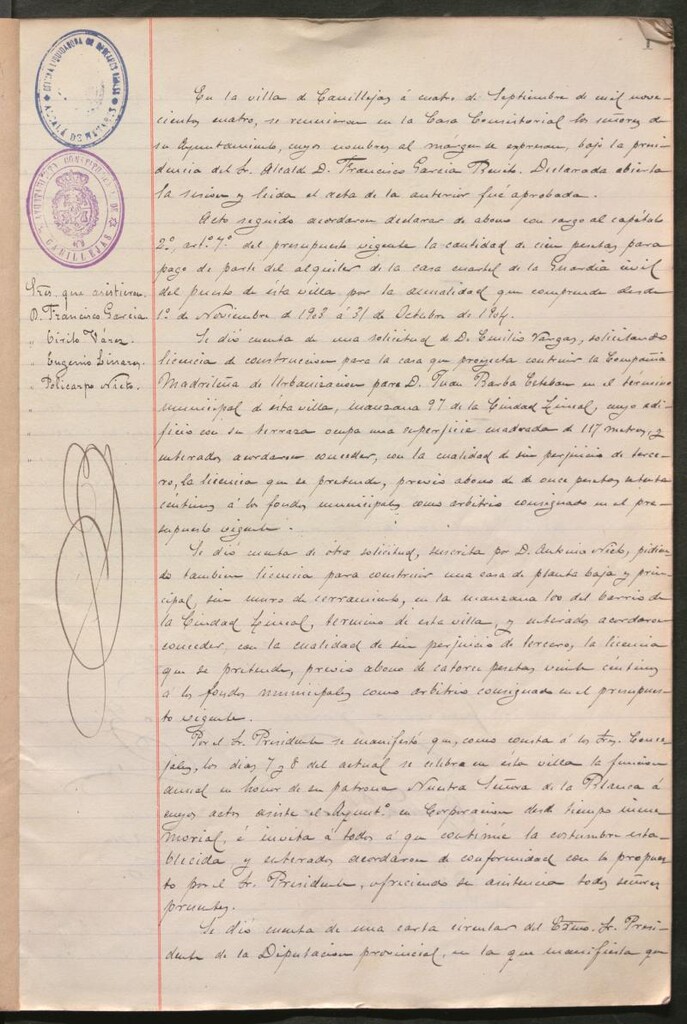 1
OFICINA LIQUIDADORA DE DERECHOS REALES
ALCALÁ DE HENARES
AYUNTAMIENTO CONSTITUCIONAL DE
CANILLEJAS
Sres. que asistieron.
D. Francisco García
" Cirilo Vázez.
" Eugenio Linares.
" Policarpo Nieto.
En la villa de Canillejas á cuatro de Septiembre de mil nove-
cientos cuatro, se reunieron en la Casa Consistorial los señores de
su Ayuntamiento, cuyos nombres al márgen se expresan, bajo la presi-
dencia del Sr. Alcalde D. Francisco García Benito. Declarada abierta
la sesion y leida el acta de la anterior fué aprobada.
Acto seguido acordaron declarar de abono con cargo al capítulo
2º, artº 7º del presupuesto vigente la cantidad de cien pesetas para
pago de parte del alquiler de la casa cuartel de la Guardia civil
del puesto de ésta villa, por la anualidad que comprende desde
1º de Noviembre de 1903 á 31 de Octubre de 1904.
Se dió cuenta de una solicitud de D. Emilio Vargas, solicitando
licencia de construccion para la casa que proyecta contruir la Compañía
Madrileña de Urbanizacion para D. Juan Barba Esteban en el término
municipal de ésta villa, manzana 97 de la Ciudad Lineal, cuyo edi-
ficio con su terraza ocupa una superficie cuadrada de 117 metros, y
enterados acordaron conceder, con la cualidad de sin perjuicio de terce-
ro, la licencia que se pretende, previo abono de de once pesetas setenta
céntimos á los fondos municipales como arbitrio consignado en el pre-
supuesto vigente.
Se dió cuenta de otra solicitud, suscrita por D. Antonio Nieto, pidien-
do tambien licencia para construir una casa de planta baja y prin-
cipal, sin muro de cerramiento, en la manzana 100 del barrio de
la Ciudad Lineal, termino de esta villa, y enterados acordaron
conceder, con la cualidad de sin perjuicio de tercero, la licencia
que se pretende, previo abono de catorce pesetas veinte céntimos
á los fondos municipales como arbitrio consignado en el presupues-
to vigente.
Por el Sr. Presidente se manifestó que, como consta á los Sres. Conce-
jales, los dias 7 y 8 del actual se celebra en ésta villa la funcion
anual en honor de su patrona Nuestra Señora de la Blanca á
cuyos actos asiste el Ayuntº en Corporacion desde tiempo inme-
morial, é invita á todos á que continúe la costumbre esta-
blecida y enterados acordaron de conformidad con lo propues-
to por el Sr. Presidente, ofreciendo su asistencia todos señores
presentes.
Se dió cuenta de una carta circular del Exmo. Sr. Presi-
dente de la Diputacion provincial, en la que manifiesta que